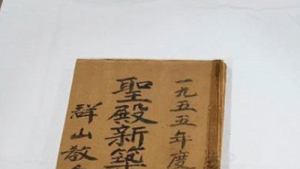 一九五五年度
聖殿新築
群山教